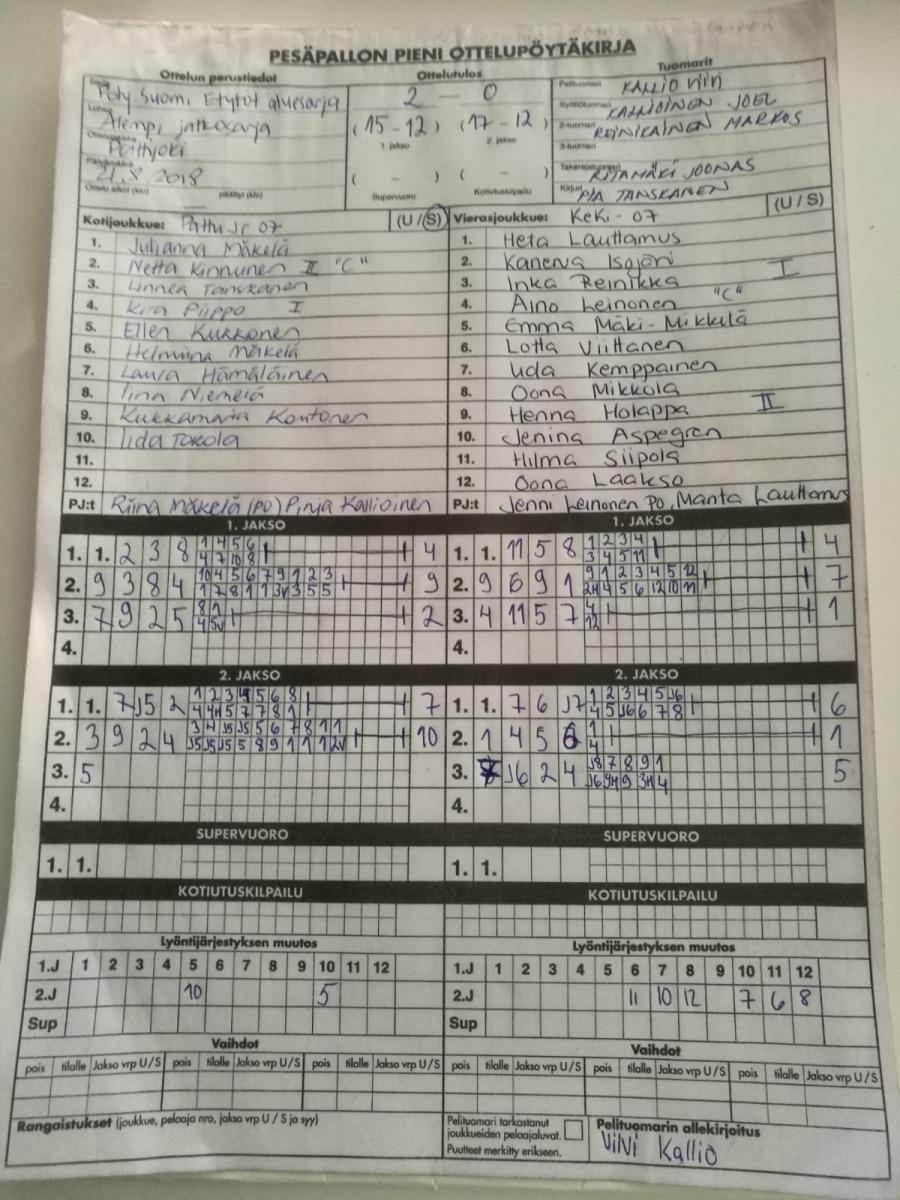 PESÄPALLON PIENI OTTELUPÖYTÄKIRJA
Ottelun perustiedot
Ottelutulos
Tuomarit
Sarja Pohj. Suomi, Etytöt aluesarja
2 — 0
Pelituomari KALLIO
Lohko Alempi jatkosarja
(15 - 12) (17 - 12)
Syöttötuomari KALLIOINEN JOEL
1. jakso 2. jakso
2-tuomari REINIKAINEN MARKOS
Pattijoki
3-tuomari
Päivämäärä 21.8.2018
( - ) ( - )
Takarajatuomari JOONAS
Ottelu alkoi (klo) päättyi (klo)
Supervuoro Kotiutuskilpailu
Kirjuri PIA TANSKANEN
Kotijoukkue: Pattu Jr 07 (U / S)
Vierasjoukkue: KeKi - 07 (U / S)
1. Julianna Mäkelä
2. Netta Kinnunen II "C"
3. Linnea Tanskanen
4. Kira Piippo I
5. Ellen Kukkonen
6. Helmiina Mäkelä
7. Laura Hämäläinen
8. Iina Niemelä
9. Kukkamaria Kontonen
10. Iida Tokola
11.
12.
PJ:t Riina Mäkelä (PO) Pinja Kallioinen
1. Heta Lauttamus
2. Kanerva Isojäri I
3. Inka Reinikka
4. Aino Leinonen "C"
5. Emma Mäki-Mikkilä
6. Lotta Viittanen
7. Uda Kemppainen
8. Oona Mikkola
9. Henna Holappa II
10. Jenina Aspegren
11. Hilma Siipola
12. Oona Laakso
PJ:t Jenni Leinonen PO, Manta Lauttamus
1. JAKSO
1. 1. 2 3 8 1 4 5 6 4
4 7 10 8
2. 9 3 8 4 10 4 5 6 7 9 1 2 3 9
1 7 8 1 1 3V 3 5 5
3. 7 9 2 5 8 1 2
4 5V
4.
1. JAKSO
1. 1. 11 5 8 1 2 3 4 4
3 4 5 11
2. 9 6 9 1 9 1 2 3 4 5 12 7
2H 4 5 6 12 10 11
3. 4 11 5 7 4 1
12
4.
2. JAKSO
1. 1. 7 J5 2 1 2 3 4 5 6 8 7
4 4H 5 7 7 8 1
2. 3 9 2 4 3 4 J5 J5 5 6 7 8 1 1 10
J5 J5 J5 5 8 9 1 1 1 2V
3. 5
4.
2. JAKSO
1. 1. 7 6 J7 1 2 3 4 5 J6 6
4 5 J6 6 7 8
2. 1 4 5 6 1 1
4
3. J6 2 4 J8 7 8 9 1 5
J6 9H 9 3H 4
4.
SUPERVUORO
1. 1.
SUPERVUORO
1. 1.
KOTIUTUSKILPAILU
KOTIUTUSKILPAILU
Lyöntijärjestyksen muutos
1.J 1 2 3 4 5 6 7 8 9 10 11 12
2.J 10 5
Sup
Lyöntijärjestyksen muutos
1.J 1 2 3 4 5 6 7 8 9 10 11 12
2.J 11 10 12 7 6 8
Sup
Vaihdot
pois tilalle Jakso vrp U/S pois tilalle Jakso vrp U/S pois tilalle Jakso vrp U/S
Vaihdot
pois tilalle Jakso vrp U/S pois tilalle Jakso vrp U/S pois tilalle Jakso vrp U/S
Rangaistukset (joukkue, pelaaja nro, jakso vrp U / S ja syy)
Pelituomari tarkastanut
joukkueiden pelaajaluvat.
Puutteet merkitty erikseen.
Pelituomarin allekirjoitus
Vilvi Kallio